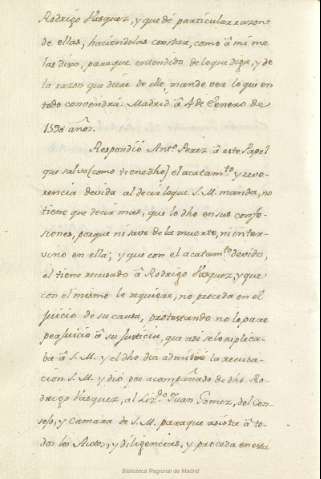 Rodrigo Vasquez, y que dé particular razon
de ellas, haciendolas constar, como â mi me
las dixo, para que entendido de lo que diga, y de
la razon que diere de ello, mande ver lo que en
todo convendrá: Madrid â 4 de Henero de
1590 años.
Respondió Antº. Perez â este Papel
que salvo (como tiene dho) el acatamto. y reve-
rencia devida al decir lo que S. M. manda, no
tiene que decir mas, que lo dho en sus confe-
siones, porque ni save de la muerte, ni inter-
vino en ella; y que con el acatamto. devido,
el tiene recusado â Rodrigo Vasquez, y que
con el mismo le requiere, no proceda en el
Juicio de su causa, protestando no le pare
perjuicio â su Justicia, que assi selo aplica-
ba â S. M. y el dho dia admitió la recusa-
cion S. M. y dió por acompañado de dho Ro-
drigo Vasquez, al Lizdo. Juan Gomez, del Con-
sejo, y Camara de S. M. para que asista â to-
dos los Autos, y diligencias, y proceda en esta
Biblioteca Regional de Madrid